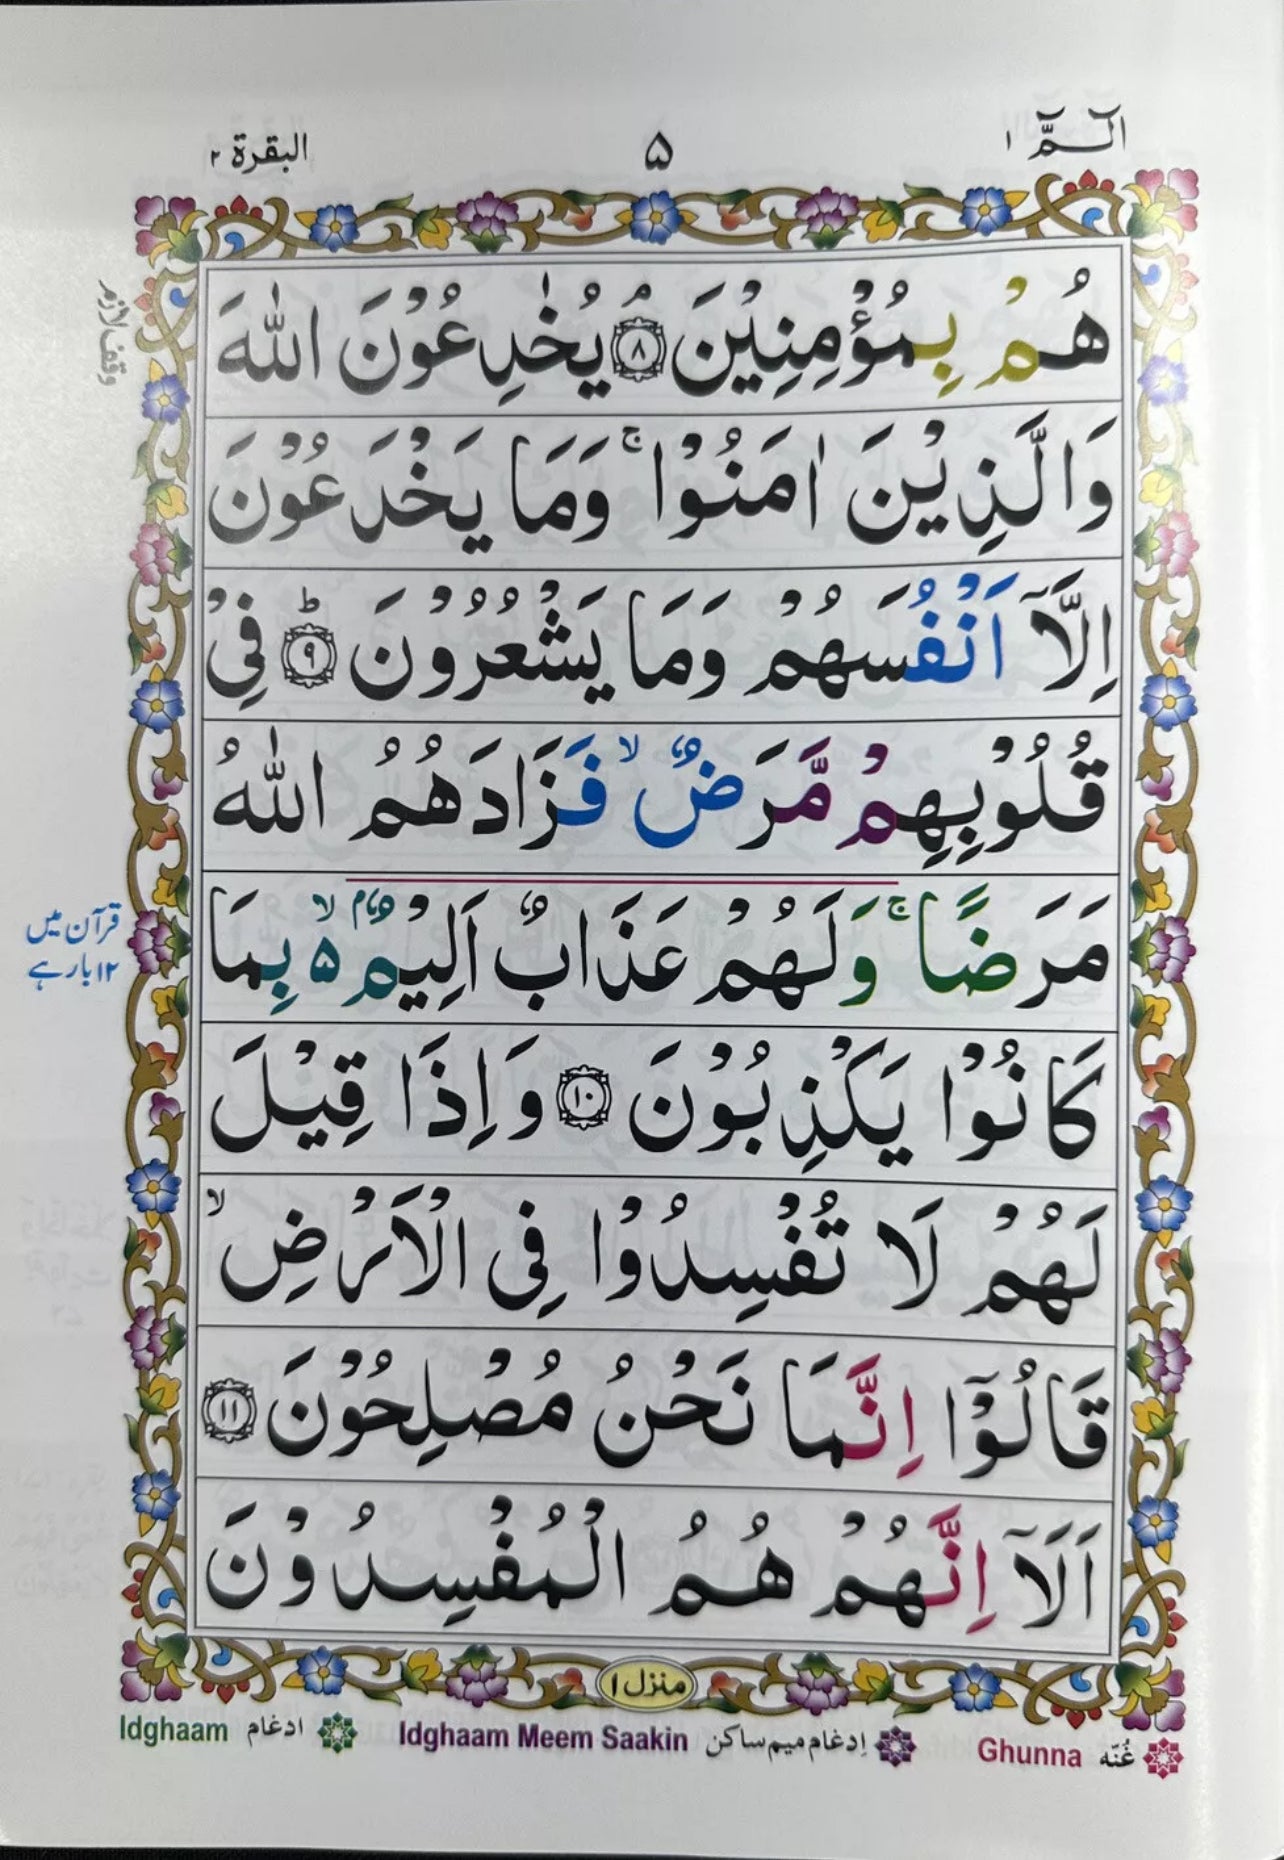 الٓمّٓ ١
۵
البقرة ٢
هُمْ بِمُؤْمِنِیْنَ ۘ﴿٨﴾ یُخٰدِعُوْنَ اللّٰهَ
وقف لازم
وَالَّذِیْنَ اٰمَنُوْا ۚ وَمَا یَخْدَعُوْنَ
اِلَّاۤ اَنْفُسَهُمْ وَمَا یَشْعُرُوْنَ ؕ﴿٩﴾ فِیْ
قُلُوْبِهِمْ مَّرَضٌ ۙ فَزَادَهُمُ اللّٰهُ
مَرَضًا ۚ وَلَهُمْ عَذَابٌ اَلِیْمٌۢ ۙ۵ بِمَا
قرآن میں
۱۲ بار ہے
كَانُوْا یَكْذِبُوْنَ ﴿١٠﴾ وَاِذَا قِیْلَ
لَهُمْ لَا تُفْسِدُوْا فِی الْاَرْضِ ۙ
قَالُوْۤا اِنَّمَا نَحْنُ مُصْلِحُوْنَ ﴿١١﴾
اَلَاۤ اِنَّهُمْ هُمُ الْمُفْسِدُوْنَ
منزل ١
Ghunna غُنّه
Idghaam Meem Saakin إدغام میم ساکن
Idghaam ادغام